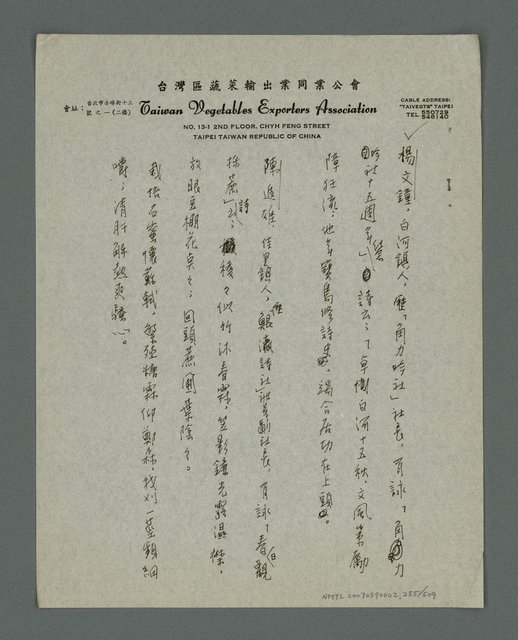 台灣區蔬菜輸出業同業公會
會址：台北市赤峰街十三號之一(二樓)
Taiwan Vegetables Exporters Association
CABLE ADDRESS:
"TAIVEGTS" TAIPEI
TEL 550729
548140
NO. 13-1 2ND FLOOR, CHYH FENG STREET
TAIPEI TAIWAN REPUBLIC OF CHINA
楊文鐘，白河鎮人，歷「角力吟社」社長，有詠「角力
吟社十五週年」詩云：「卓幟白河十五秋，文風第勵
障狂流，他年寶島修詩史，端合居功在上頭。
陳進雄，佳里鎮人，鯤瀛詩社社長，有詠「春日觀
採蔗」詩云：稜々似竹沐春霖，笠影鐮光露濕襟，
放眼豆棚花奐々，回頭蔗圃葉陰々。
栽培石蜜懷蘇軾，繁殖糖霜仰鄭森，我刈一莖頻細
嚼，清肝解熱爽騷心。
NMTL 20070590002, 255/509